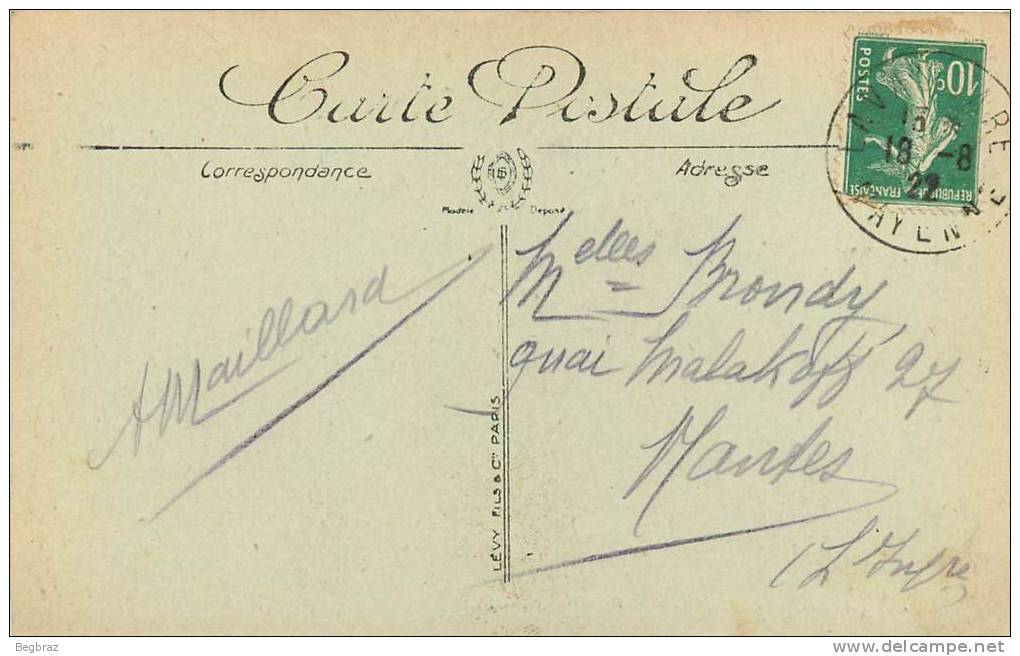 Carte Postale
Correspondance
Adresse
Modèle Déposé
10c
POSTES
REPUBLIQUE FRANÇAISE
LAV GARE
15
18 -8
22
MAYENNE
AMaillard
Melles Brondy
quai Malakoff 27
Nantes
(L'Infre
LÉVY FILS & Cie PARIS
Begbraz
www.delcampe.net